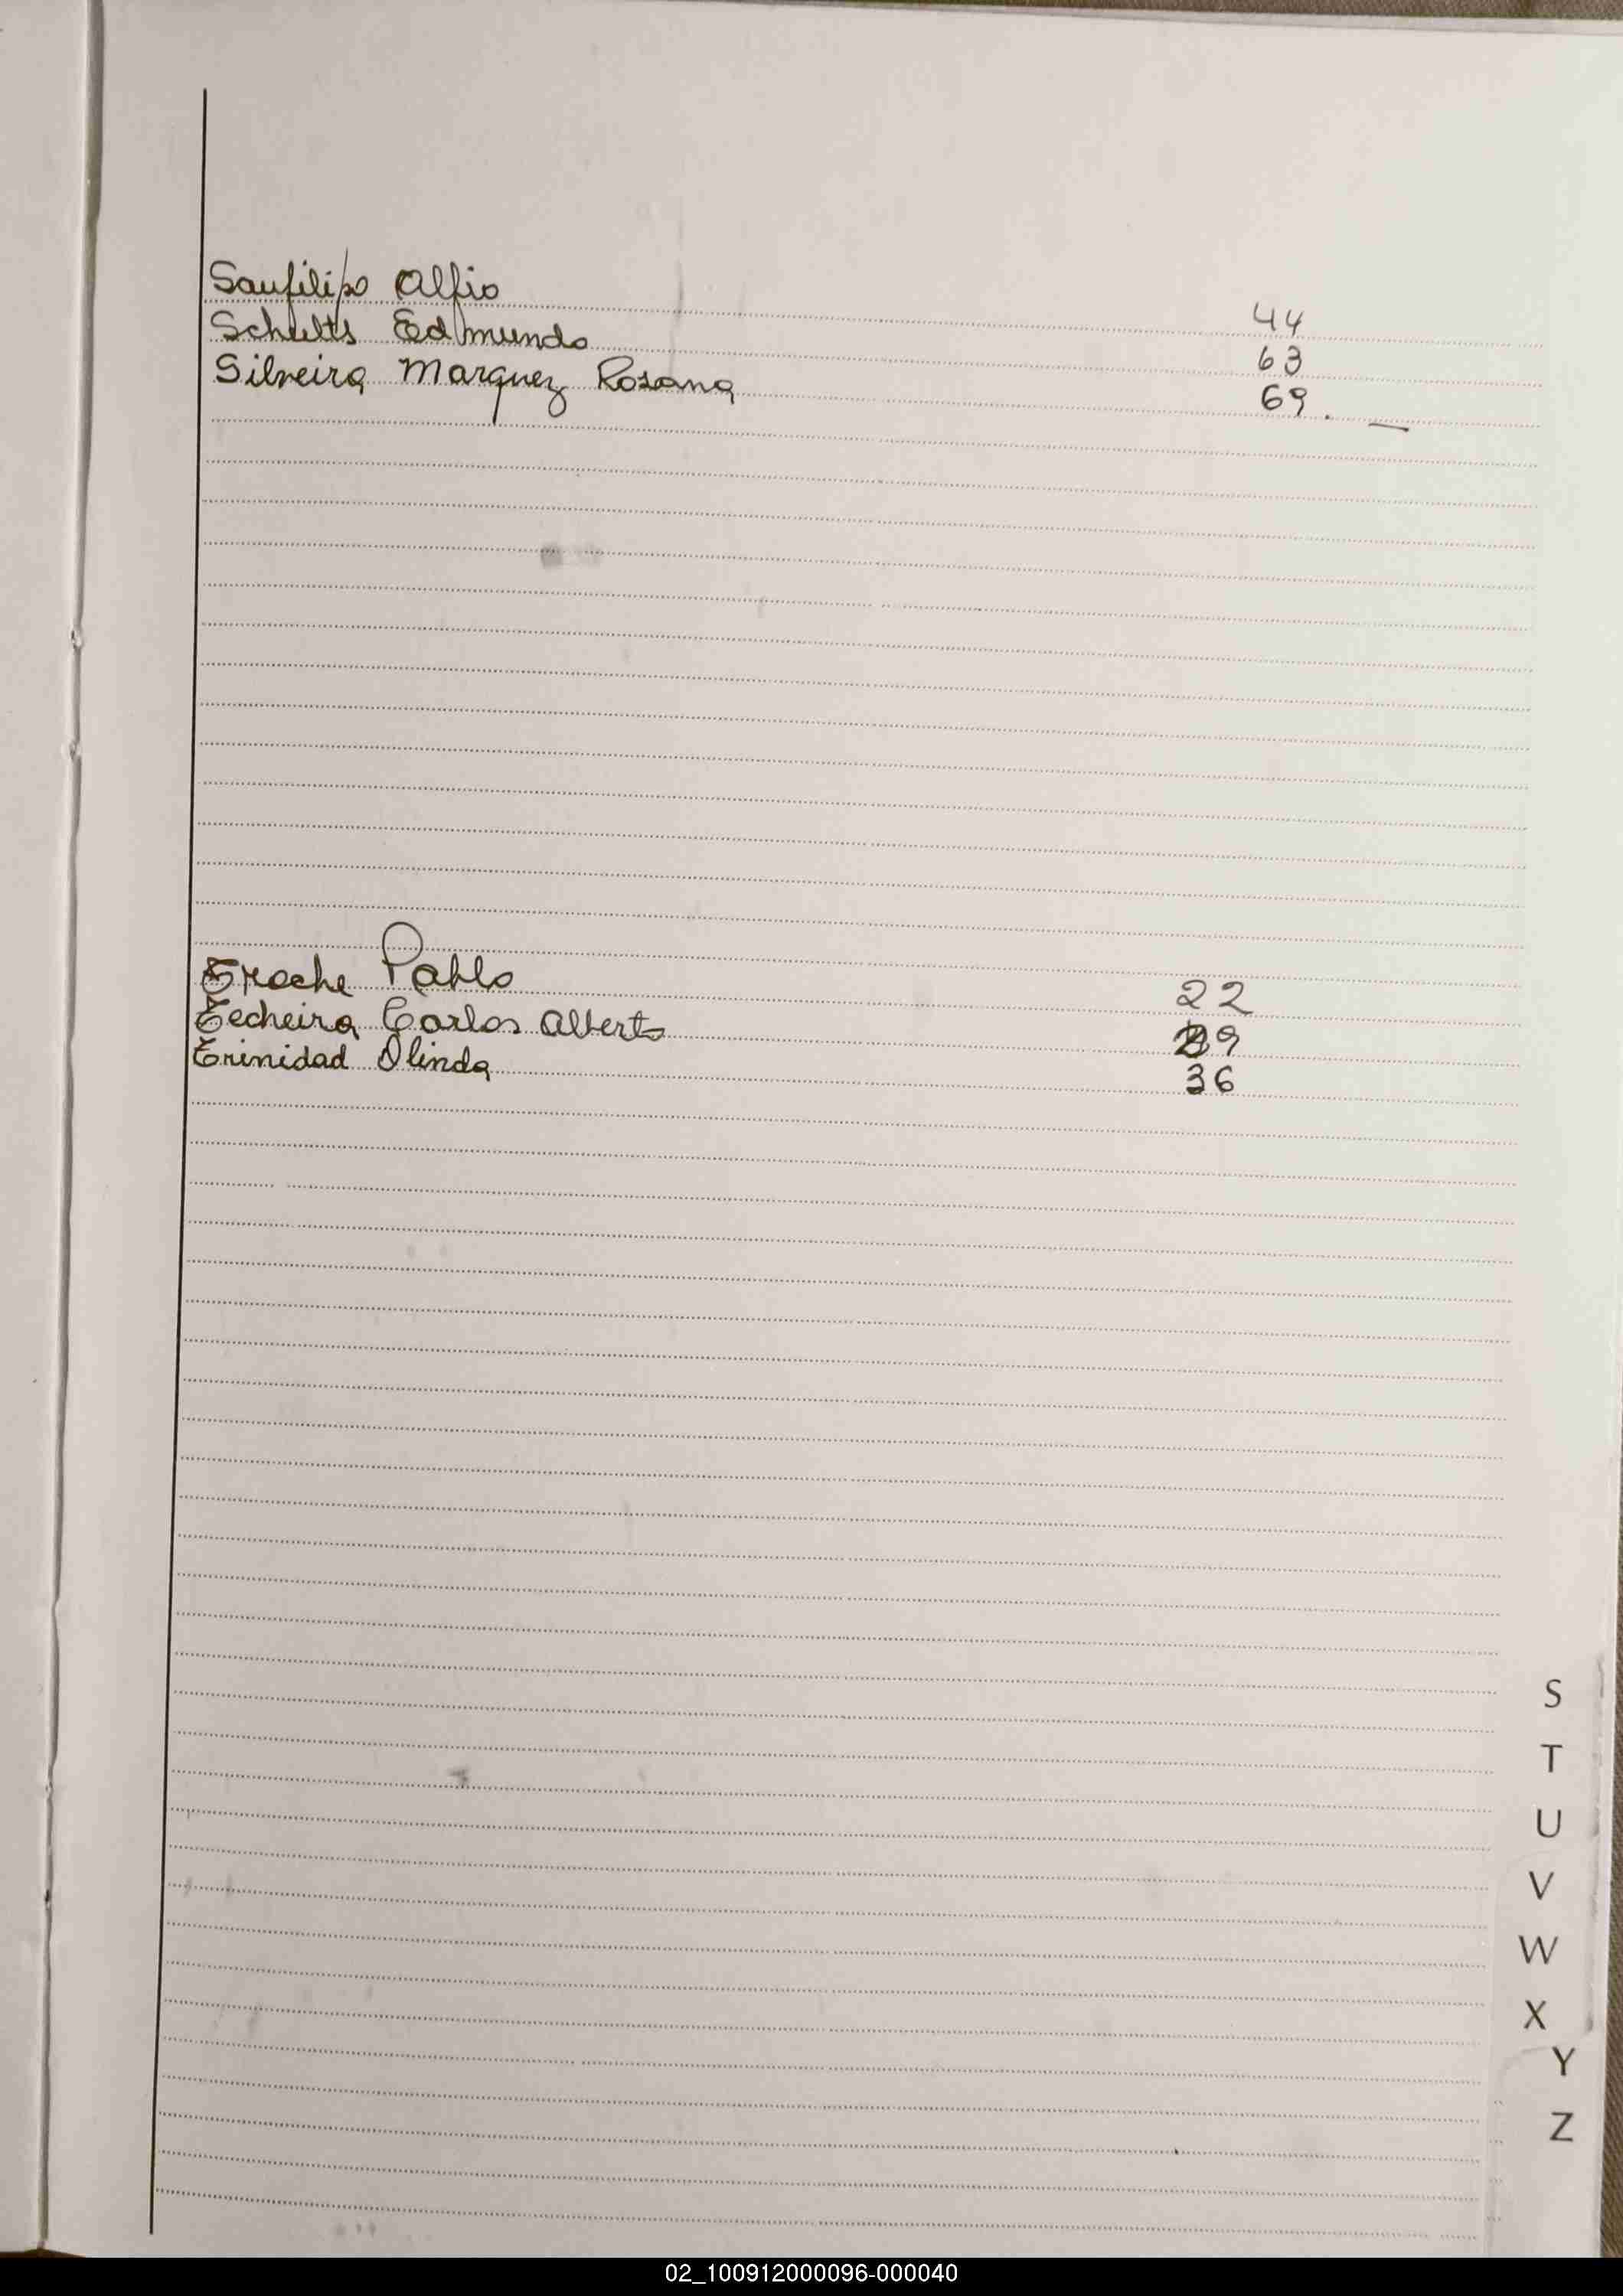 Sanfilipo Alfio 44
Schults Edmundo 63
Silveira Marquez Rosana 69. —
Troche Pablo 22
Techeira Carlos Alberto 29
Trinidad Olinda 36
S
T
U
V
W
X
Y
Z
02_100912000096-000040